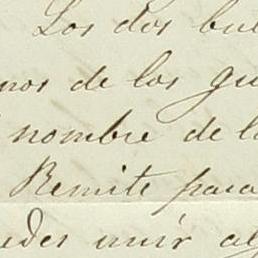 Los dos bu
nos de los gu
nombre de l
Remite para
eder unir al